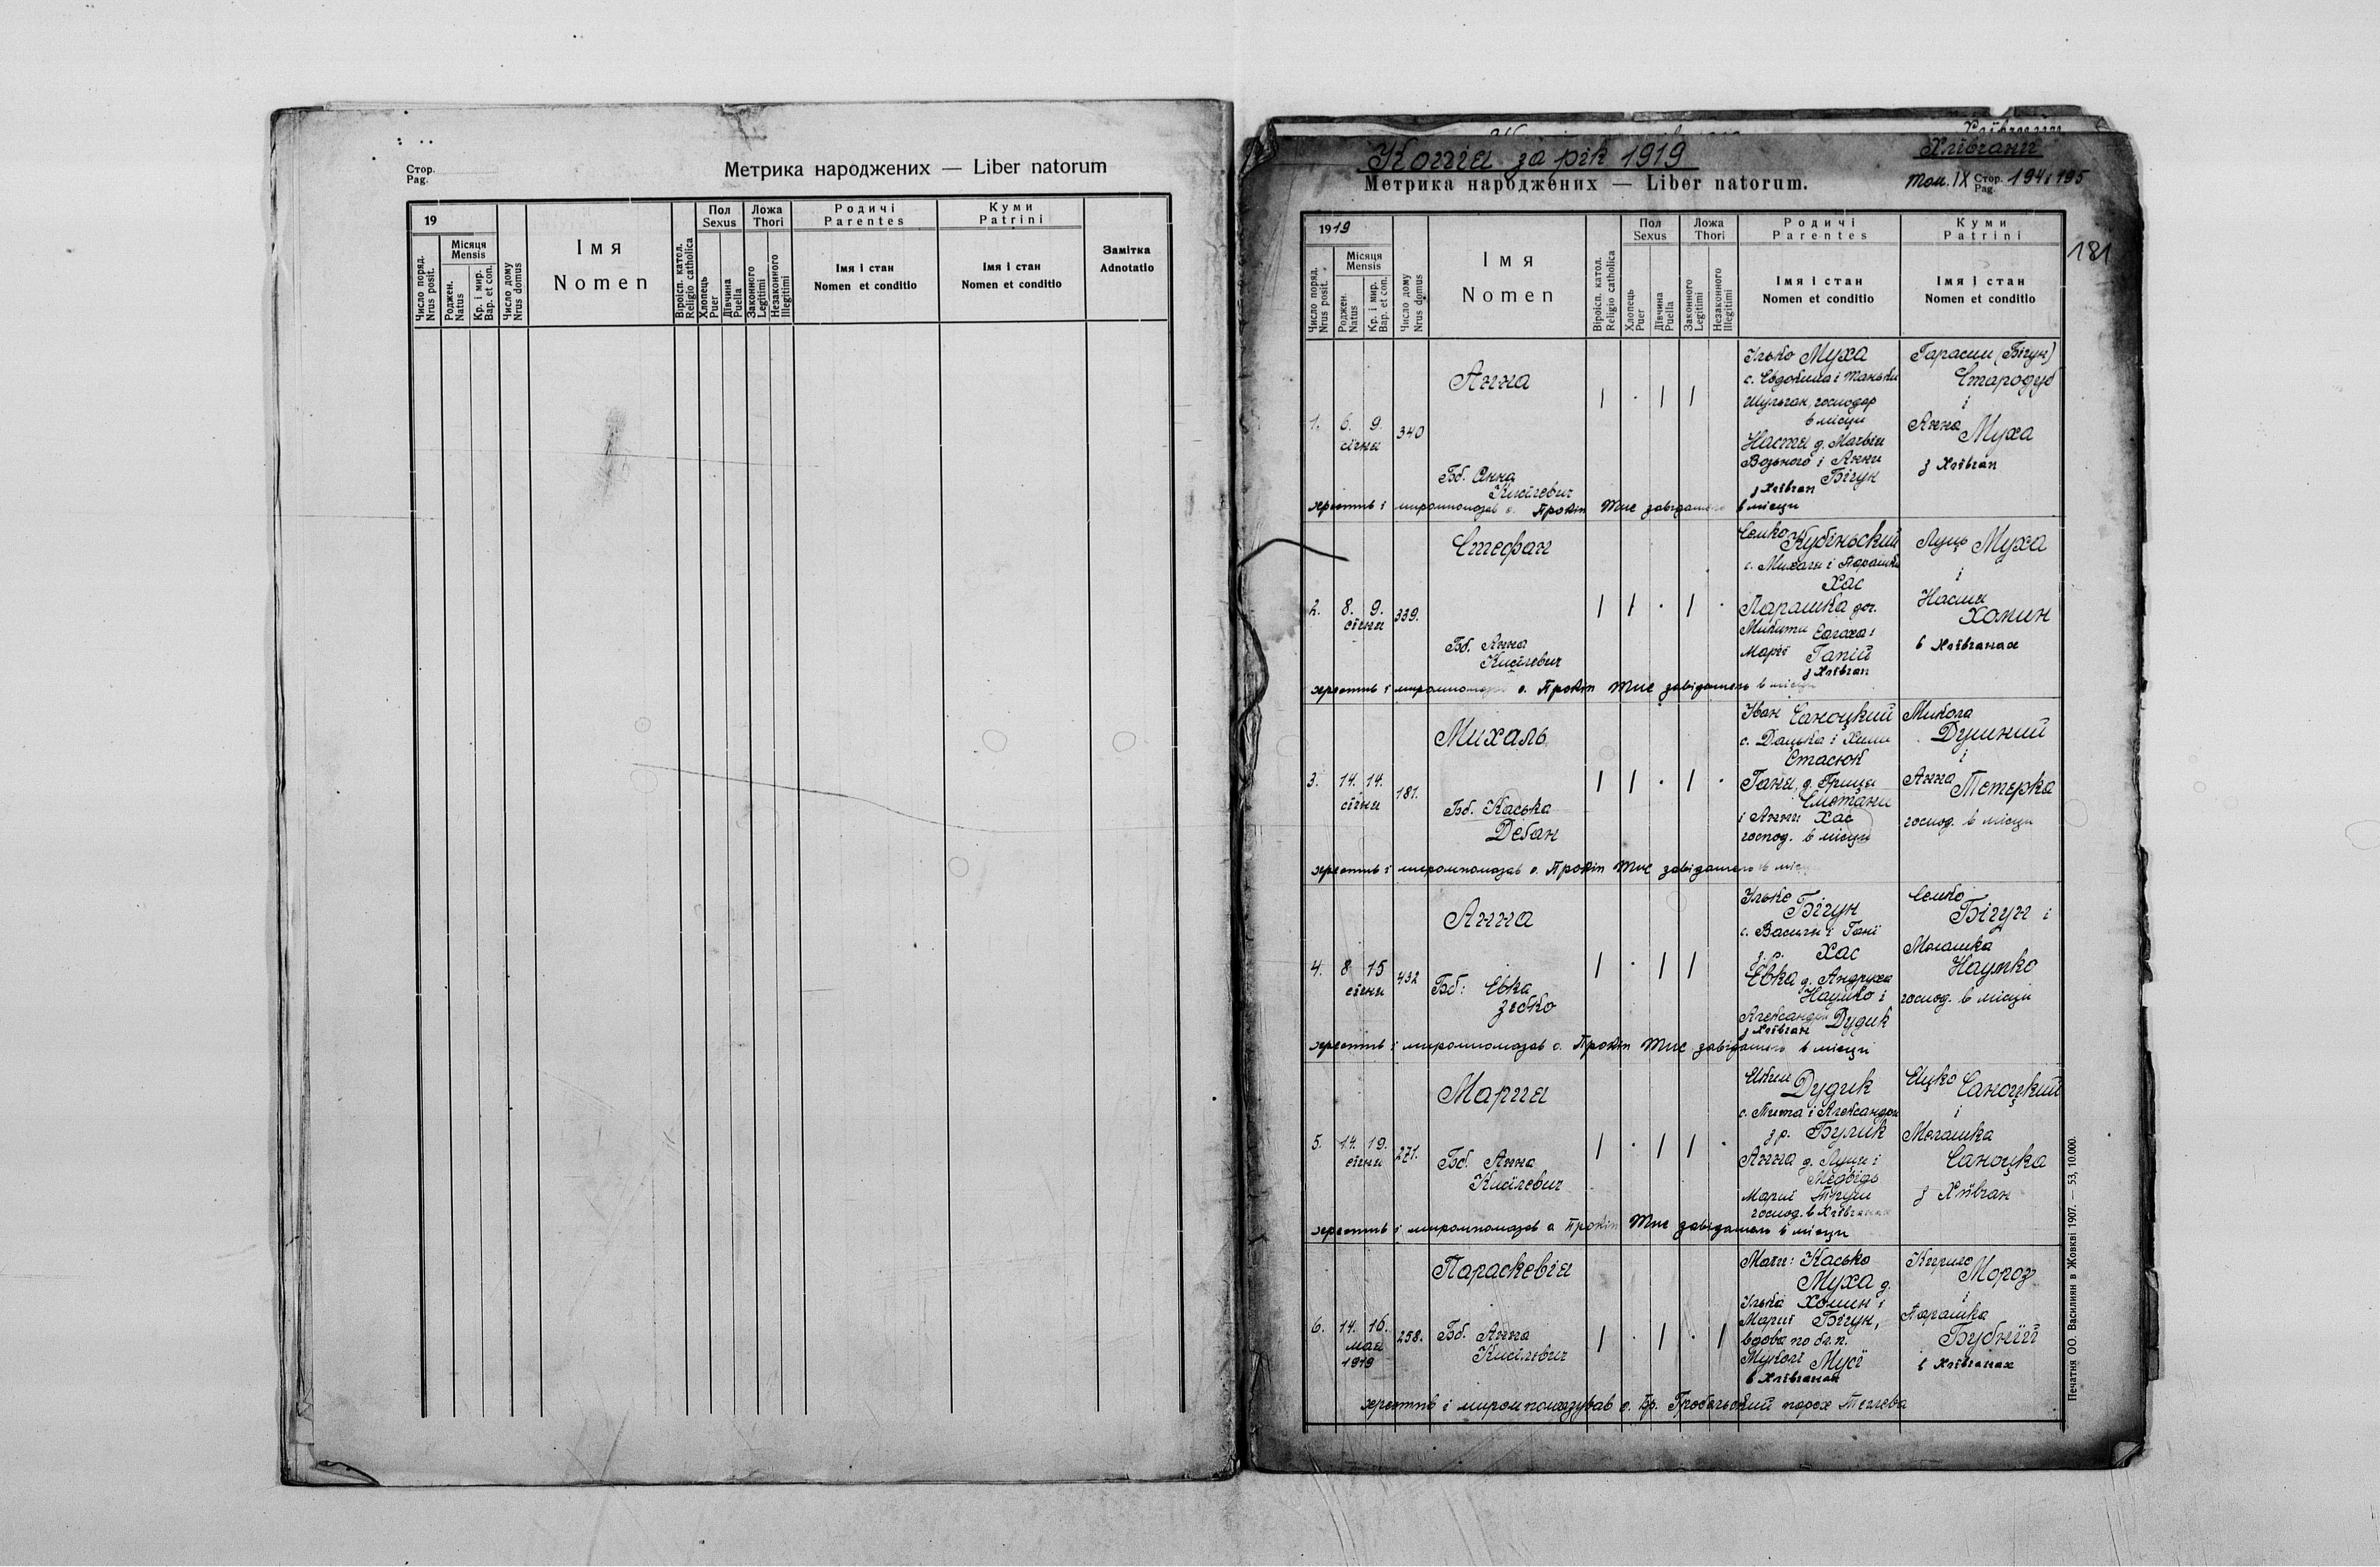 Стор.
Pag.
Метрика народжених — Liber natorum
19
Число поряд.
Nrus posit.
Місяця
Mensis
Роджен.
Natus
Кр. і мир.
Bap. et con.
Число дому
Nrus domus
Імя
Nomen
Віроісп. катол.
Religio catholica
Пол
Sexus
Хлопець
Puer
Дівчина
Puella
Ложа
Thori
Законного
Legitimi
Незаконного
Illegitimi
Родичі
Parentes
Імя і стан
Nomen et conditio
Куми
Patrini
Імя і стан
Nomen et conditio
Замітка
Adnotatio
Копія за рік 1919
Хлівчани
Метрика народжених — Liber natorum.
Том. IX Стор. 194 і 195
Pag.
181
1919
Число поряд.
Nrus posit.
Місяця
Mensis
Роджен.
Natus
Кр. і мир.
Bap. et con.
Число дому
Nrus domus
Імя
Nomen
Віроісп. катол.
Religio catholica
Пол
Sexus
Хлопець
Puer
Дівчина
Puella
Ложа
Thori
Законного
Legitimi
Незаконного
Illegitimi
Родичі
Parentes
Імя і стан
Nomen et conditio
Куми
Patrini
Імя і стан
Nomen et conditio
1. 6. 9.
січня
340
Анна
Бб. Анна
Кисілевич
Ілько Муха
с. Євдокима і Таньки
Шульган, господар
в місци
Настя д.
Возьного і Анни
Бігун
з Хлівчан
Гарасим (Бігун)
Стародуб
і
Анна Муха
з Хлівчан
хрестив і миропомазав о. Прокіп Тис завідатель в місци
2. 8. 9.
січня
339.
Стефан
Бб. Анна
Кисілевич
Семко
Кубіньский
с. Михала і Парашки
Хас
Парашка доч.
Микити
Марії Гапій
з Хлівчан
Луць Муха
і
Настя
Хомин
в Хлівчанах
хрестив і миропомазав о. Прокіп Тис завідатель в місци
3. 14. 14.
січня
181.
Михаль
Бб. Каська
Дебан
Іван Саноцкий
с. Данька і Хими
Стасюк
Ганя, д. Гриця
Сметани
і Анни Хас
господ. в місци
Микола
Душний
і
Анна Тетерка
господ. в місци
хрестив і миропомазав о. Прокіп Тис завідатель в місци
4. 8 15
січня
432
Анна
Бб: Евка
Ілько
Бігун
с. Василя і Гані
з р. Хас
Евка д. Андруха
Наумко і
Александри Дудик
з Хлівчан
Семко
Бігун і
Малашка
Наумко
господ. в місци
хрестив і миропомазав о. Прокіп Тис завідатель в місци
5. 14. 19.
січня
271.
Мария
Бб. Анна
Кисілевич
Дудик
с. Тита і Александри
з р. Булик
Анна д. Луця і
Медвідь
Марії
господ. в Хлівчанах
Ецко Саноцкий
і
Малашка
Саноцка
з Хлівчан
хрестив і миропомазав о. Прокіп Тис завідатель в місци
6. 14. 16.
мая
1919
258.
Параскевія
Бб. Анна
Кисілевич
Мати: Каська
Муха д.
Ілька Хомин і
Марії Бігун,
вдова по бл. п.
Миколі Мусї
в Хлівчанах
Кирило
Мороз
і
Парашка
Бубній
в Хлівчанах
хрестив і миропомазував о.
Печатня ОО. Василиян в Жовкві 1907. — 53, 10.000.